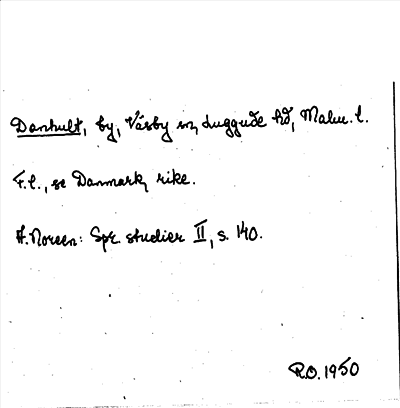 Danhult, by, Väsby sn, Luggude hd, Malm. l.
F.l., se Danmark, rike.
A. Noreen: Spr. studier II, s. 140.
R.O. 1950